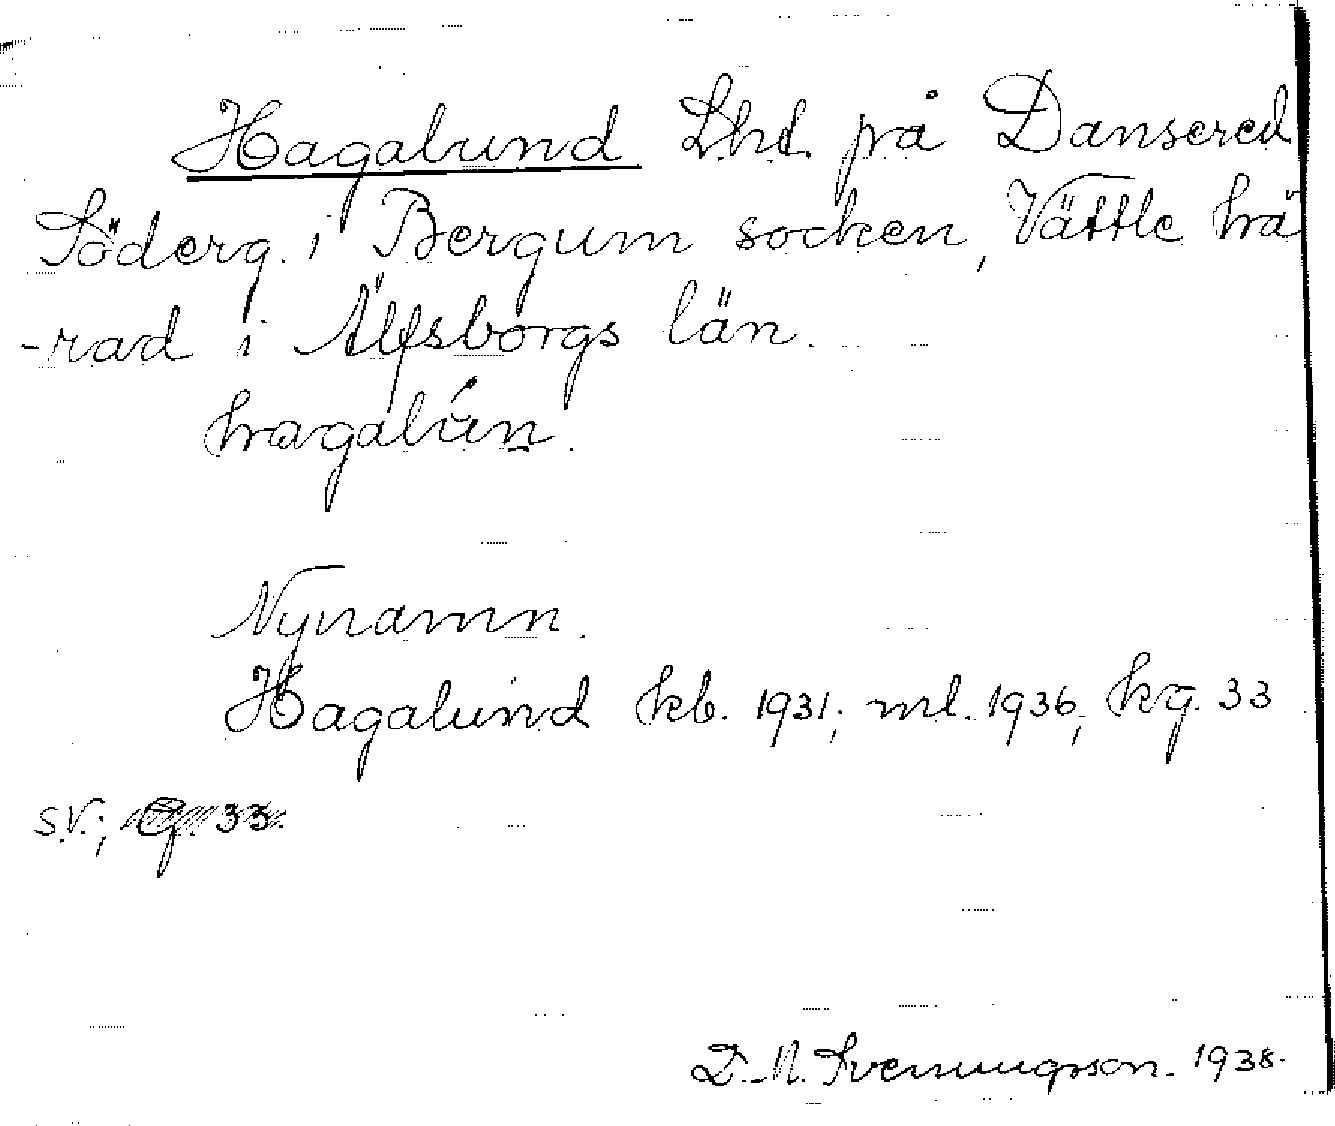 Hagalund Lht. på Dansered
Söderg. i Bergum socken, Vättle hä
-rad i Älfsborgs län.
hagalún.
Nynamn.
Hagalund kb. 1931; ml. 1936; kg. 33
s.v.; G. 33.
D. N. Svenningsson. 1938.